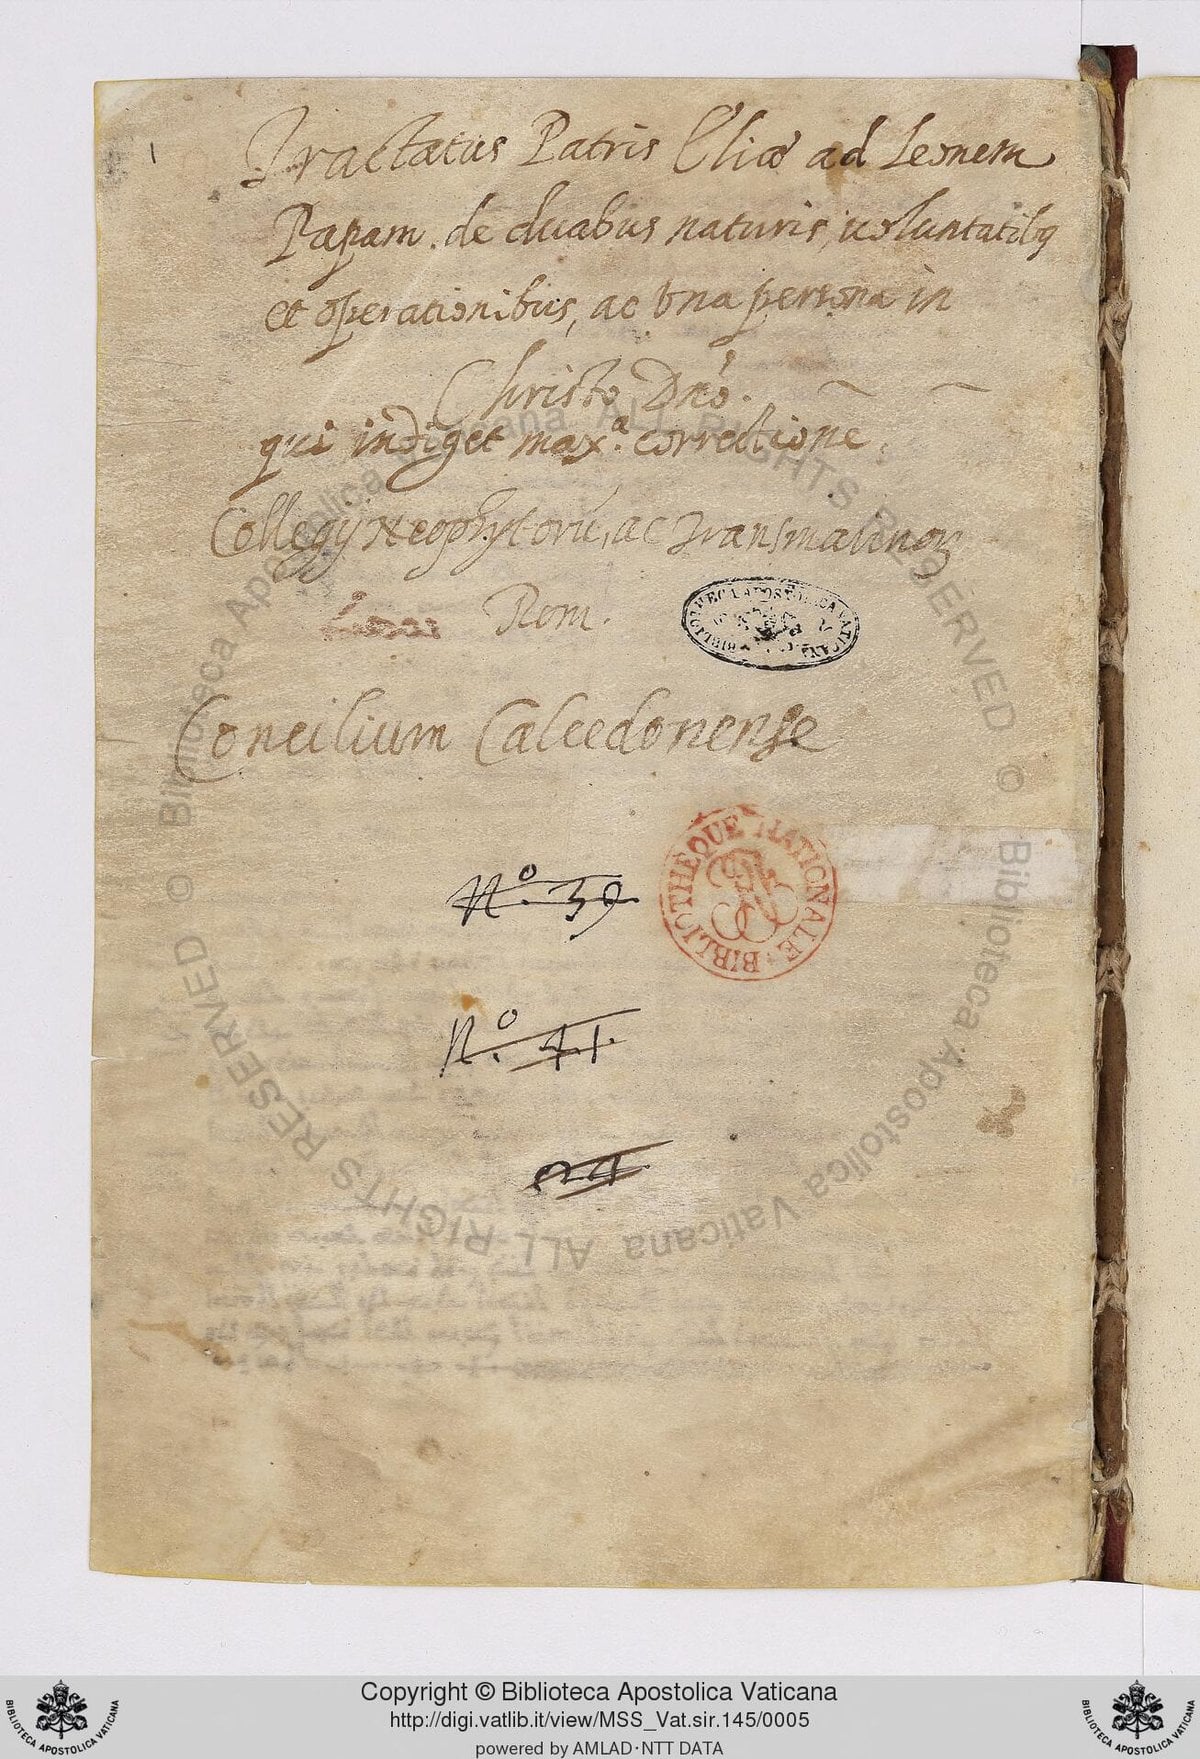 1
Tractatus Patris Eliæ ad Leonem
Papam. de duabus naturis, uoluntatibq
et operationibus, ac vna persona in
Christo Dño.
qui indiget maxª. correctione.
Collegij Neophytorũ, ac Transmarinoꝝ
Rom.
BIBLIOTHECA APOSTOLICA VATICANA
Concilium Calcedonense
Nº. 39.
BIBLIOTHÈQUE NATIONALE
RF
Nº. 41.
© Biblioteca Apostolica Vaticana ALL RIGHTS RESERVED © Biblioteca Apostolica Vaticana ALL RIGHTS RESERVED
Copyright © Biblioteca Apostolica Vaticana
http://digi.vatlib.it/view/MSS_Vat.sir.145/0005
powered by AMLAD·NTT DATA
BIBLIOTECA APOSTOLICA VATICANA
BIBLIOTECA APOSTOLICA VATICANA